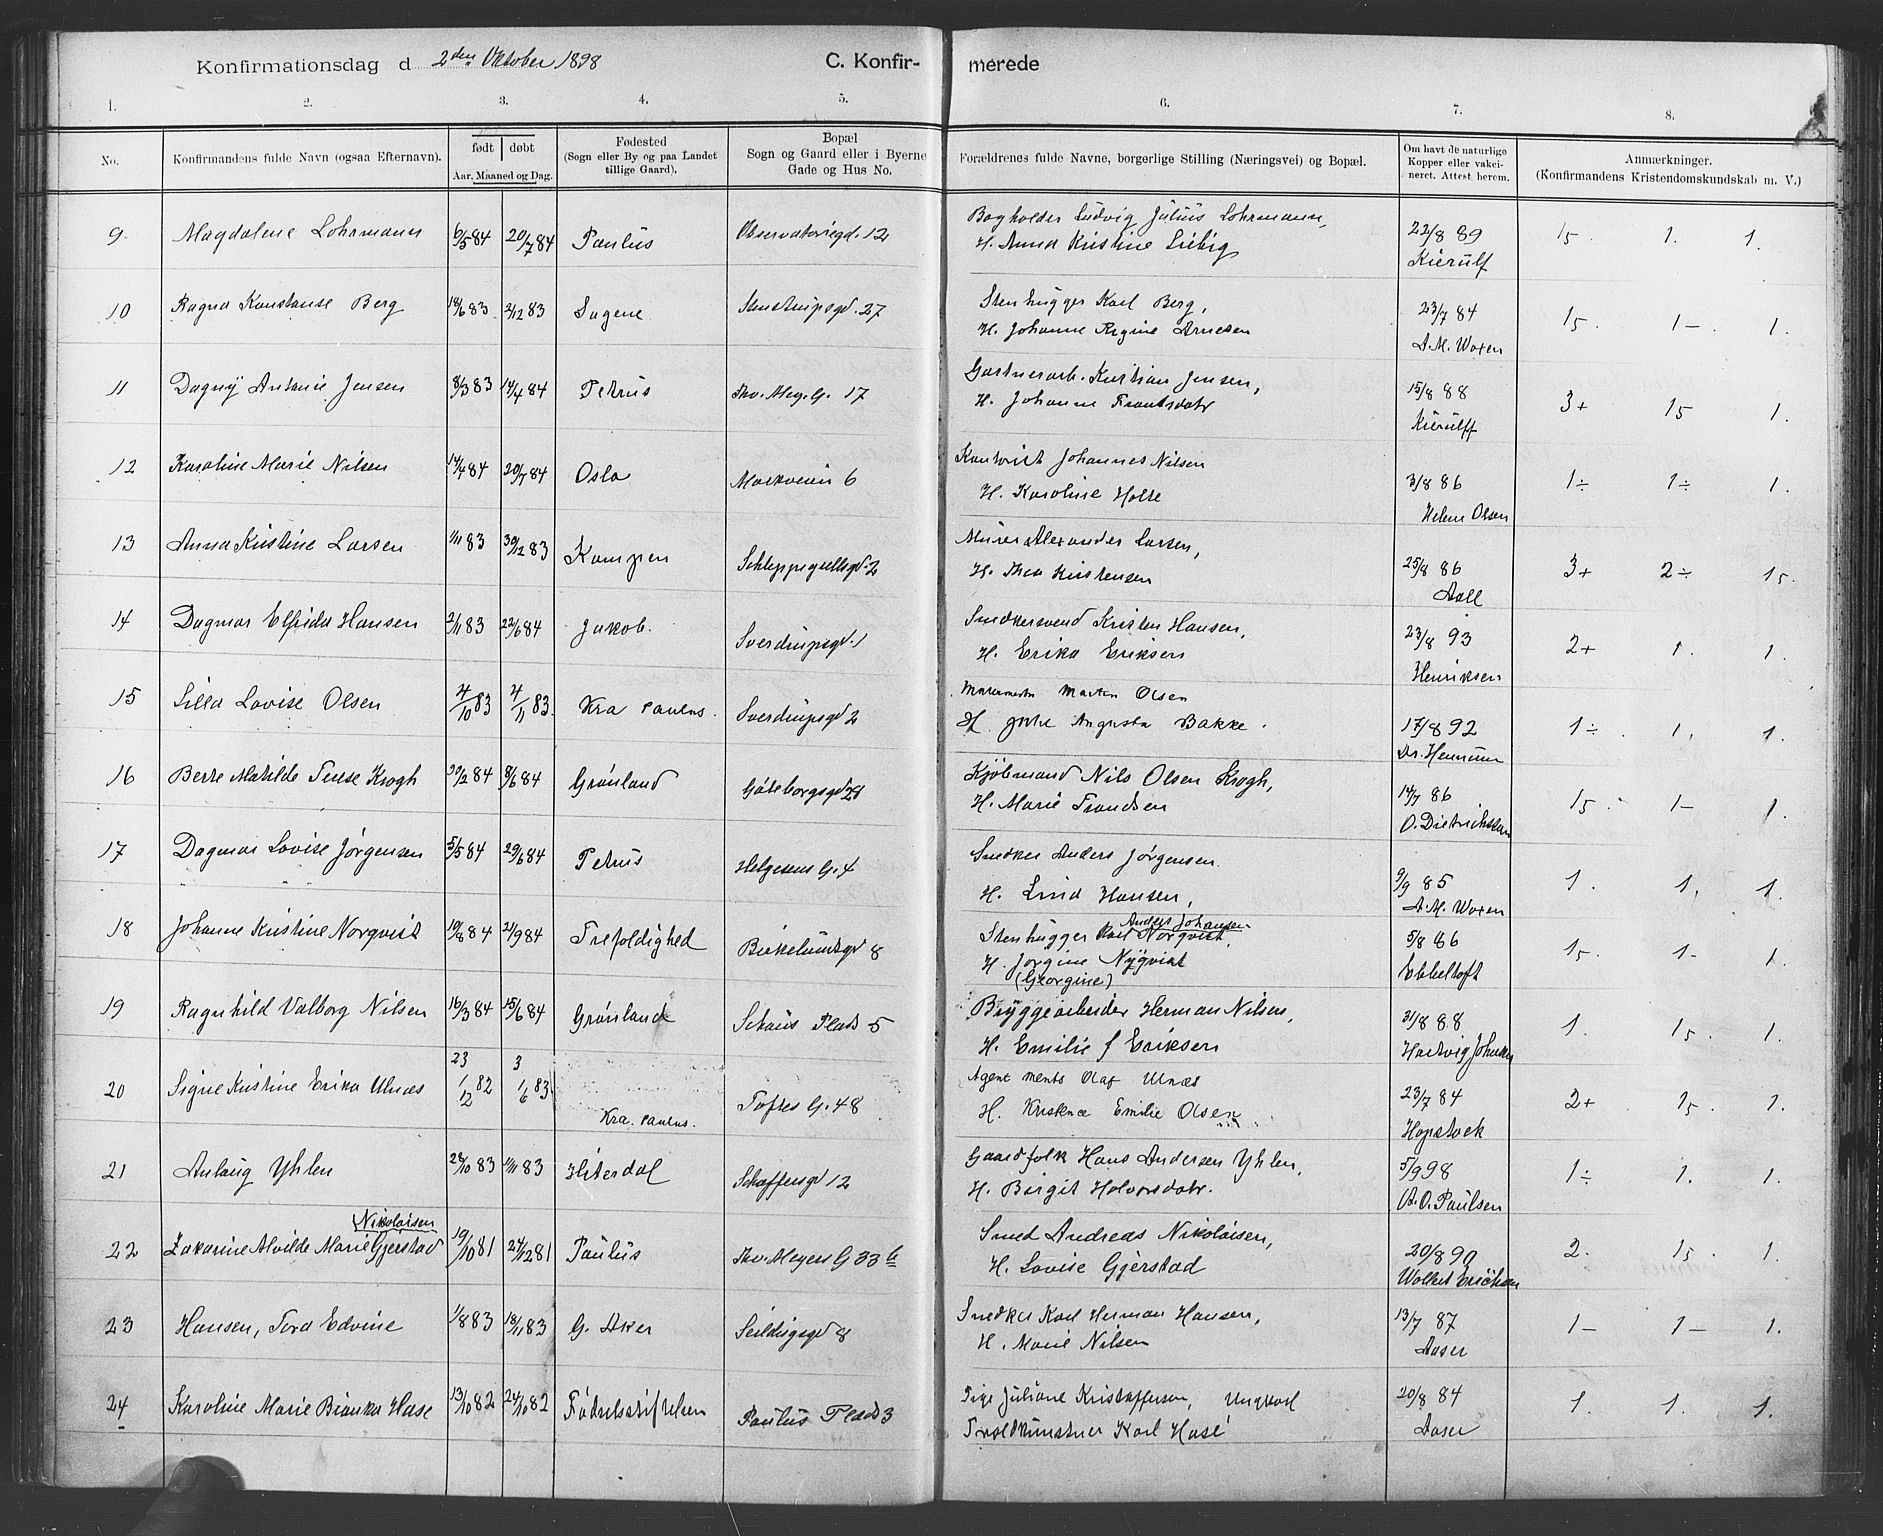 Konfirmationsdag d 2den Oktober 1898 C. Konfir- merede
1. 2. 3. 4. 5. 6. 7. 8.
No. Konfirmandens fulde Navn (ogsaa Efternavn). født døbt Aar, Maaned og Dag. Fødested (Sogn eller By og paa Landet tillige Gaard). Bopæl Sogn og Gaard eller i Byerne Gade og Hus No. Forældrenes fulde Navne, borgerlige Stilling (Næringsvei) og Bopæl. Om havt de naturlige Kopper eller vakcineret. Attest herom. Anmærkninger. (Konfirmandens Kristendomskundskab m. V.)
9. Magdalene Lohrmann 6/5 84 20/7 84 Paulus Observatoriegd. 12 Bogholder Ludvig Julius Lohrmann, 22/8 89 15 1. 1.
H. Anna Kristine Liebig Kierulf
10 Ragna Konstanse Berg 18/6 83 2/12 83 Sagene Stenstrupsgd. 27 Stenhugger Karl Berg, 23/7 84 15. 1- 1.
H. Johanne Regine Arnesen A. M. Woxen
11 Dagny Antonie Jensen 8/3 83 14/4 84 Petrus Thv. Mey. G. 17 Gartnerarb. Kristian Jensen, 15/8 88 3+ 15 1.
H. Johanne Frantsdatr Kierulff
12 Karoline Marie Nilsen 14/4 84 20/7 84 Oslo Markveien 6 Johannes Nilsen 3/8 86 1÷ 1÷ 1.
H. Karoline Holte Helene Olsen
13 Anna Kristine Larsen 1/11 83 30/12 83 Kampen Schleppegrellsgd. 2 Murer Alexander Larsen, 25/8 86 3+ 2÷ 15.
H. Thea Kristensen Aall
14 Dagmar Elfrida Hansen 2/11 83 22/6 84 Jakob. Sverdrupsgd. 1 Snedkersvend Kristen Hansen, 23/8 93 2+ 1. 1.
H. Erika Eriksen Henriksen
15 Silla Lovise Olsen 4/10 83 4/11 83. Kra Paulus. Sverdrupsgd 2 Martin Olsen 17/8 92 1÷ 1. 1.
H. Augusta Bakke.
16 Berte Matilde Tense Krogh 29/2 84 8/6 84 Grønland Gøteborgsgd 28 Kjøbmand Nils Olsen Krogh, 14/7 86 15 1- 1.
H. Marie Trondsen O. Dietrichson
17 Dagmar Lovise Jørgensen 5/5 84 29/6 84 Petrus Helgesens G. 4 Snedker Anders Jørgensen. 9/9 85 1. 1. 1.
H. Lina Hansen, A. M. Woxen
18 Johanne Kristine Norqvist 19/8 84 21/9 84 Trefoldighed Birkelundsgd 8 Stenhugger Karl Norqvist, Anders Johansen 5/8 86 15. 1- 1.
H. Jørgine Nyqvist Ebbeltoft
(Georgine)
19 Ragnhild Valborg Nilsen 16/3 84 15/6 84 Grønland Schous Plads 5 Bryggearbeider Herman Nilsen, 31/8 88 1. 15. 1.
H. Emilie f Eriksen Hartvig Johnsen
20 Signe Kristine Erika Ulnæs 23 1/12 82 3 1/6 83 Kra. Paulus. Toftes G. 48 Agent Olaf Ulnæs 23/7 84 2+ 15. 1.
H. Kristine Emilie Olsen Hopstock
21 Anlaug Yhlen 28/10 83 1/11 83 Hiterdal Schæffersgd 12 Gaardfolk Hans Andersen Yhlen, 5/9 98 1÷ 1. 1.
H. Birgit Halvorsdatr. O. Paulsen
22 Zakarine Alvilde Marie Gjerstad Nikolaisen 19/10 81 24/12 81 Paulus Thv. Meyers G 33 b Smed Andreas Nikolaisen, 20/8 90 2. 15. 1.
H. Lovise Gjerstad
23 Hansen, Tora Edvine 1/8 83 18/11 83 G. Aker Seildugsgd 8 Snedker Karl Herman Hansen, 13/7 87 1- 1- 1.
H. Marie Nilsen Aaser
24 Karoline Marie Bianka Hase 13/10 82 24/10 82 Fødselsstiftelsen Paulus Plads 3 Pige Juliane Kristoffersen, Ungkarl 20/8 84 1. 1. 1.
Troldkunstner Karl Hase Aaser